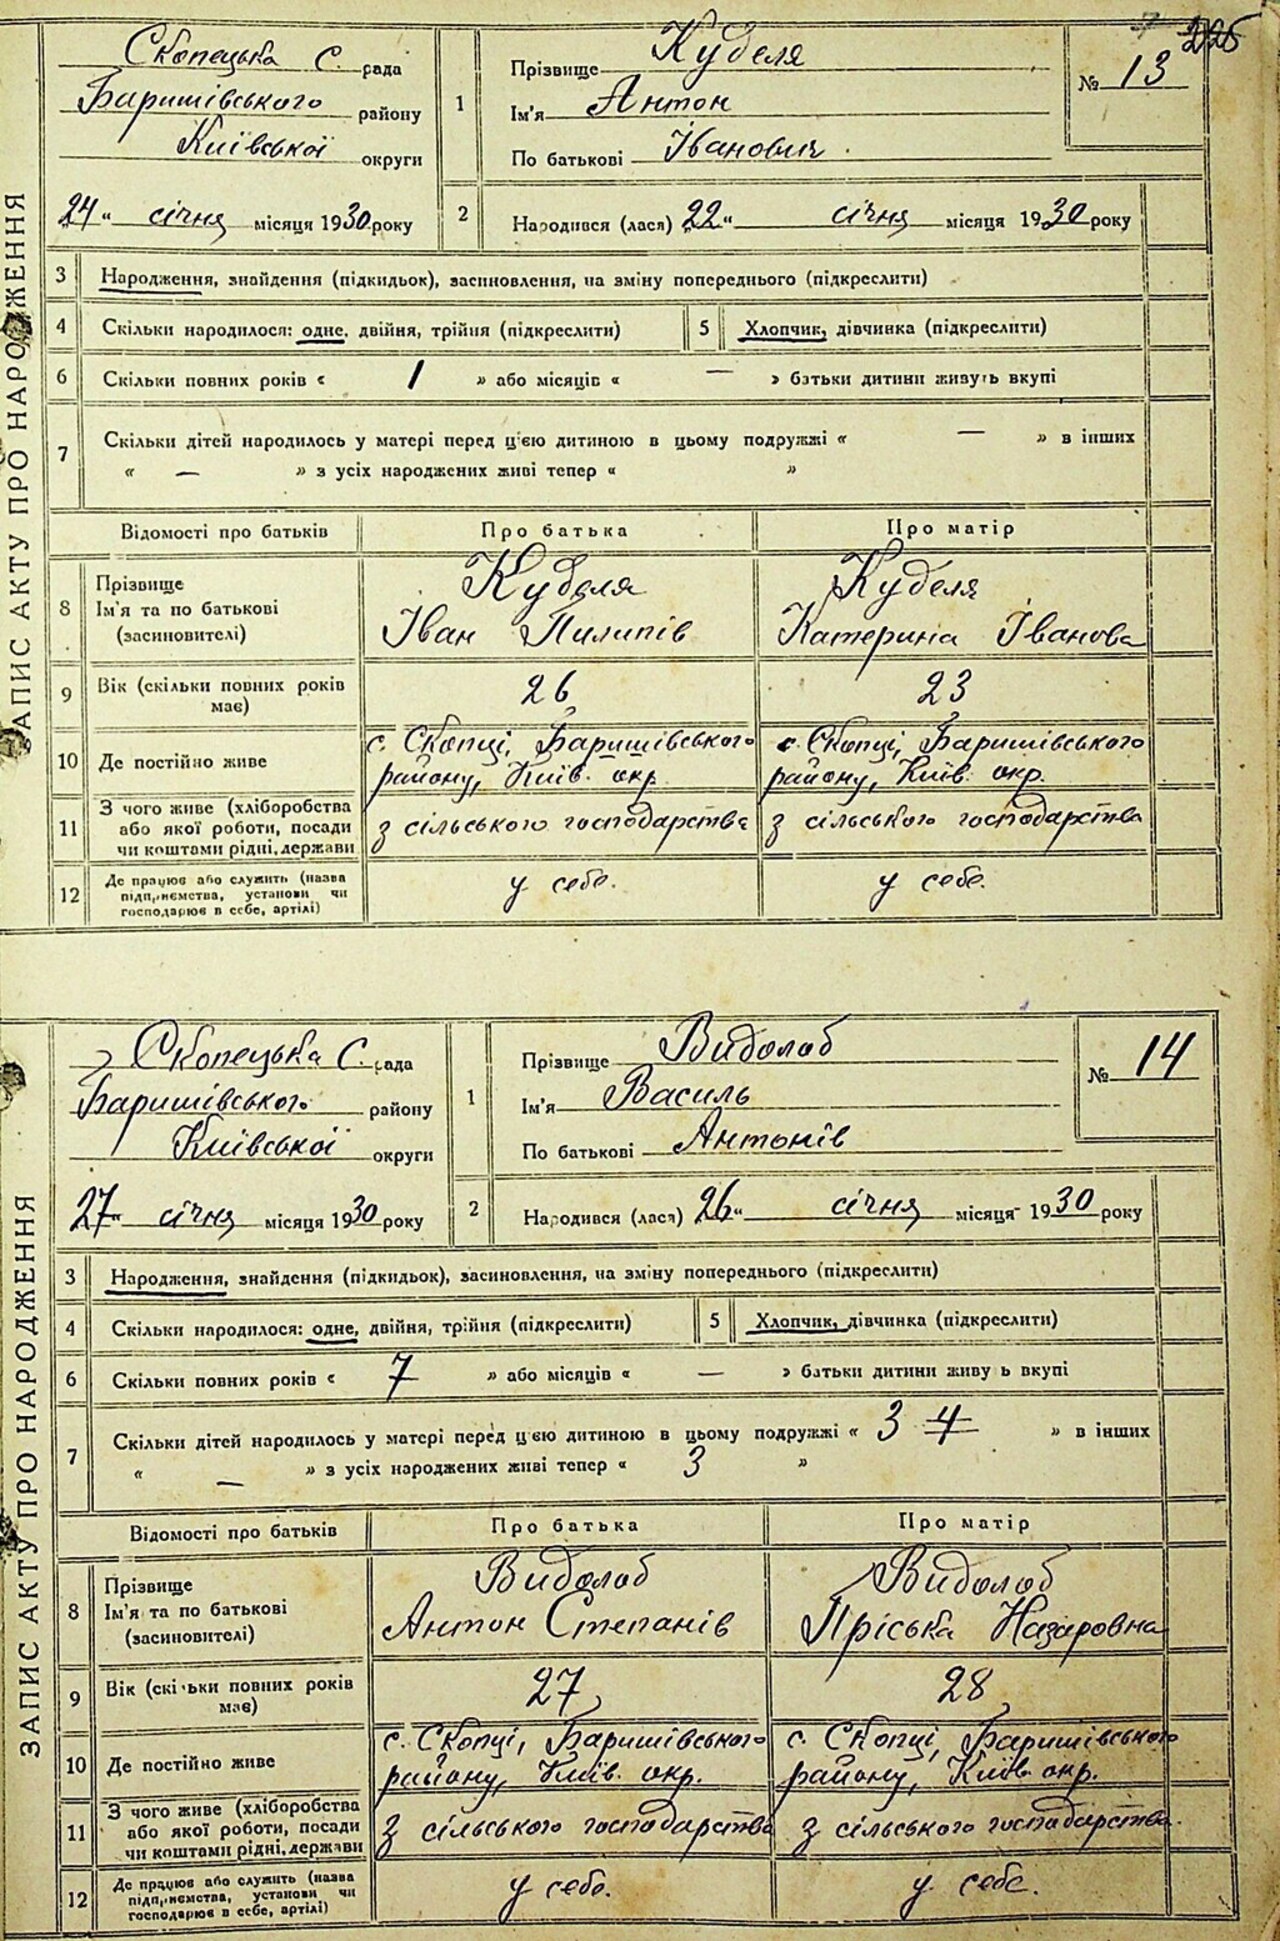 225
ЗАПИС АКТУ ПРО НАРОДЖЕННЯ
Скопецька С. рада
Баришівського району
Київської округи
24 " січня місяця 1930 року
1
Прізвище Куделя
Ім'я Антон
По батькові Іванович
№ 13
2
Народився (лася) 22 " січня місяця 1930 року
3 Народження, знайдення (підкидьок), засиновлення, на зміну попереднього (підкреслити)
4 Скільки народилося: одне, двійня, трійня (підкреслити) 5 Хлопчик, дівчинка (підкреслити)
6 Скільки повних років « 1 » або місяців « — » батьки дитини живуть вкупі
7 Скільки дітей народилось у матері перед цією дитиною в цьому подружжі « — » в інших
« — » з усіх народжених живі тепер « »
Відомості про батьків Про батька Про матір
8 Прізвище Куделя Куделя
Ім'я та по батькові Іван Пилипів Катерина Іванова
(засиновителі)
9 Вік (скільки повних років 26 23
має)
10 Де постійно живе с. Скопці, Баришівського с. Скопці, Баришівського
району, Київ. окр. району, Київ. окр.
11 З чого живе (хліборобства
або якої роботи, посади з сільського господарства з сільського господарства
чи коштами рідні, держави
12 Де працює або служить (назва у себе. у себе.
підприємства, установи чи
господарює в себе, артілі)
ЗАПИС АКТУ ПРО НАРОДЖЕННЯ
Скопецька С. рада
Баришівського району
Київської округи
27 " січня місяця 1930 року
1
Прізвище Видолоб
Ім'я Василь
По батькові Антонів
№ 14
2
Народився (лася) 26 " січня місяця 1930 року
3 Народження, знайдення (підкидьок), засиновлення, на зміну попереднього (підкреслити)
4 Скільки народилося: одне, двійня, трійня (підкреслити) 5 Хлопчик, дівчинка (підкреслити)
6 Скільки повних років « 7 » або місяців « — » батьки дитини живу ь вкупі
7 Скільки дітей народилось у матері перед цією дитиною в цьому подружжі « 3 4 » в інших
« — » з усіх народжених живі тепер « 3 »
Відомості про батьків Про батька Про матір
8 Прізвище Видолоб Видолоб
Ім'я та по батькові Антон Степанів Пріська Назаровна
(засиновителі)
9 Вік (скільки повних років 27 28
має)
10 Де постійно живе с. Скопці, Баришівського с. Скопці, Баришівського
району, Київ. окр. району, Київ. окр.
11 З чого живе (хліборобства
або якої роботи, посади з сільського господарства з сільського господарства.
чи коштами рідні, держави
12 Де працює або служить (назва у себе. у себе.
підприємства, установи чи
господарює в себе, артілі)